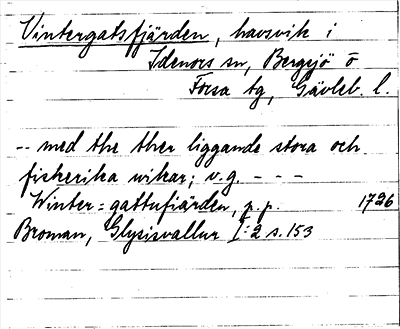 Vintergatsfjärden, havsvik i
Idenors sn, Bergsjö o
Forsa tg, Gävleb. l.
-- med the ther liggande stora och
fiskerika wikar; v.g. - - -
Winter=gattufiärden, p.p. 1726
Broman, Glysisvallur I:2 s. 153